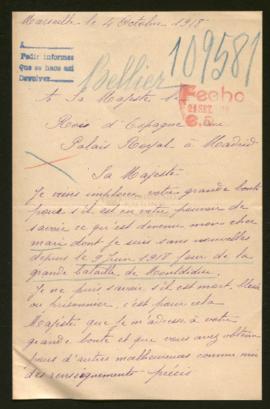 Marseille le 4 Octobre 1918
A
Pedir informes
Que se hace así
Devolver
109581
Bellier
A Sa Majesté le
Rois d'Espagne
Palais Royal à Madrid
Fecho
Sa Majesté
Je viens implorer votre grande bonté
pour s'il est en votre pouvoir de
savoir ce qui est devenu mon cher
mari dont je suis sans nouvelles
depuis le 9 Juin 1918 jour de la
grande bataille de Montdidier
Je ne puis savoir s'il est mort, blessé
ou prisonnier, c'est pour cela
Majesté que je m'adresse à votre
grande bonté et que vous avez obtenu
pour d'autres malheureuses comme moi
des renseignements précis